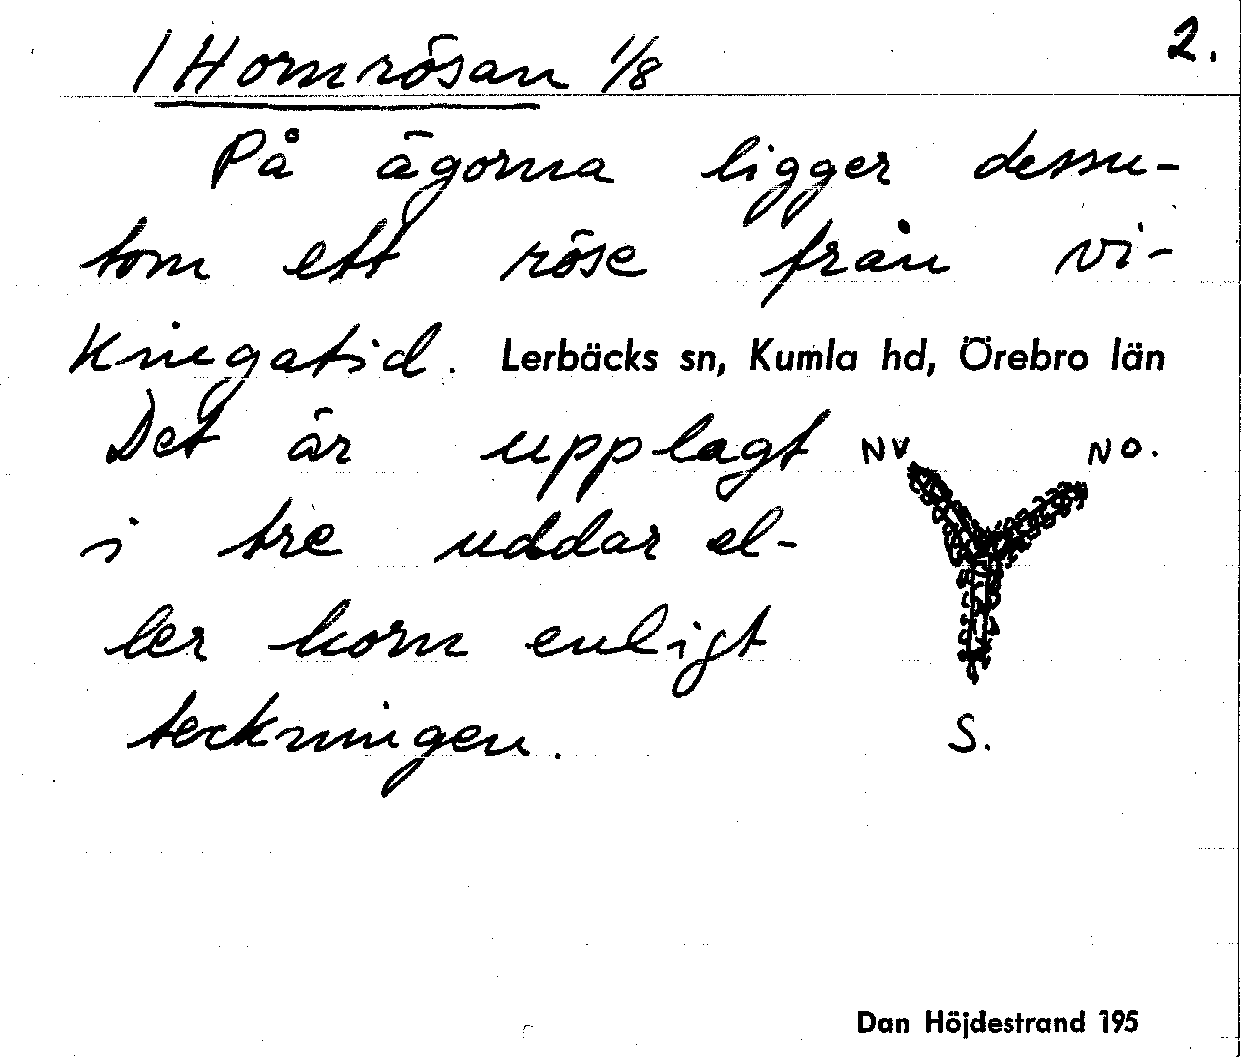 1 Hornrösan 1/8 2.
På ägorna ligger dessu-
tom ett röse från vi-
kingatid. Lerbäcks sn, Kumla hd, Örebro län
Det är upplagt NV NO.
i tre uddar el-
ler horn enligt
teckningen. S.
Dan Höjdestrand 195